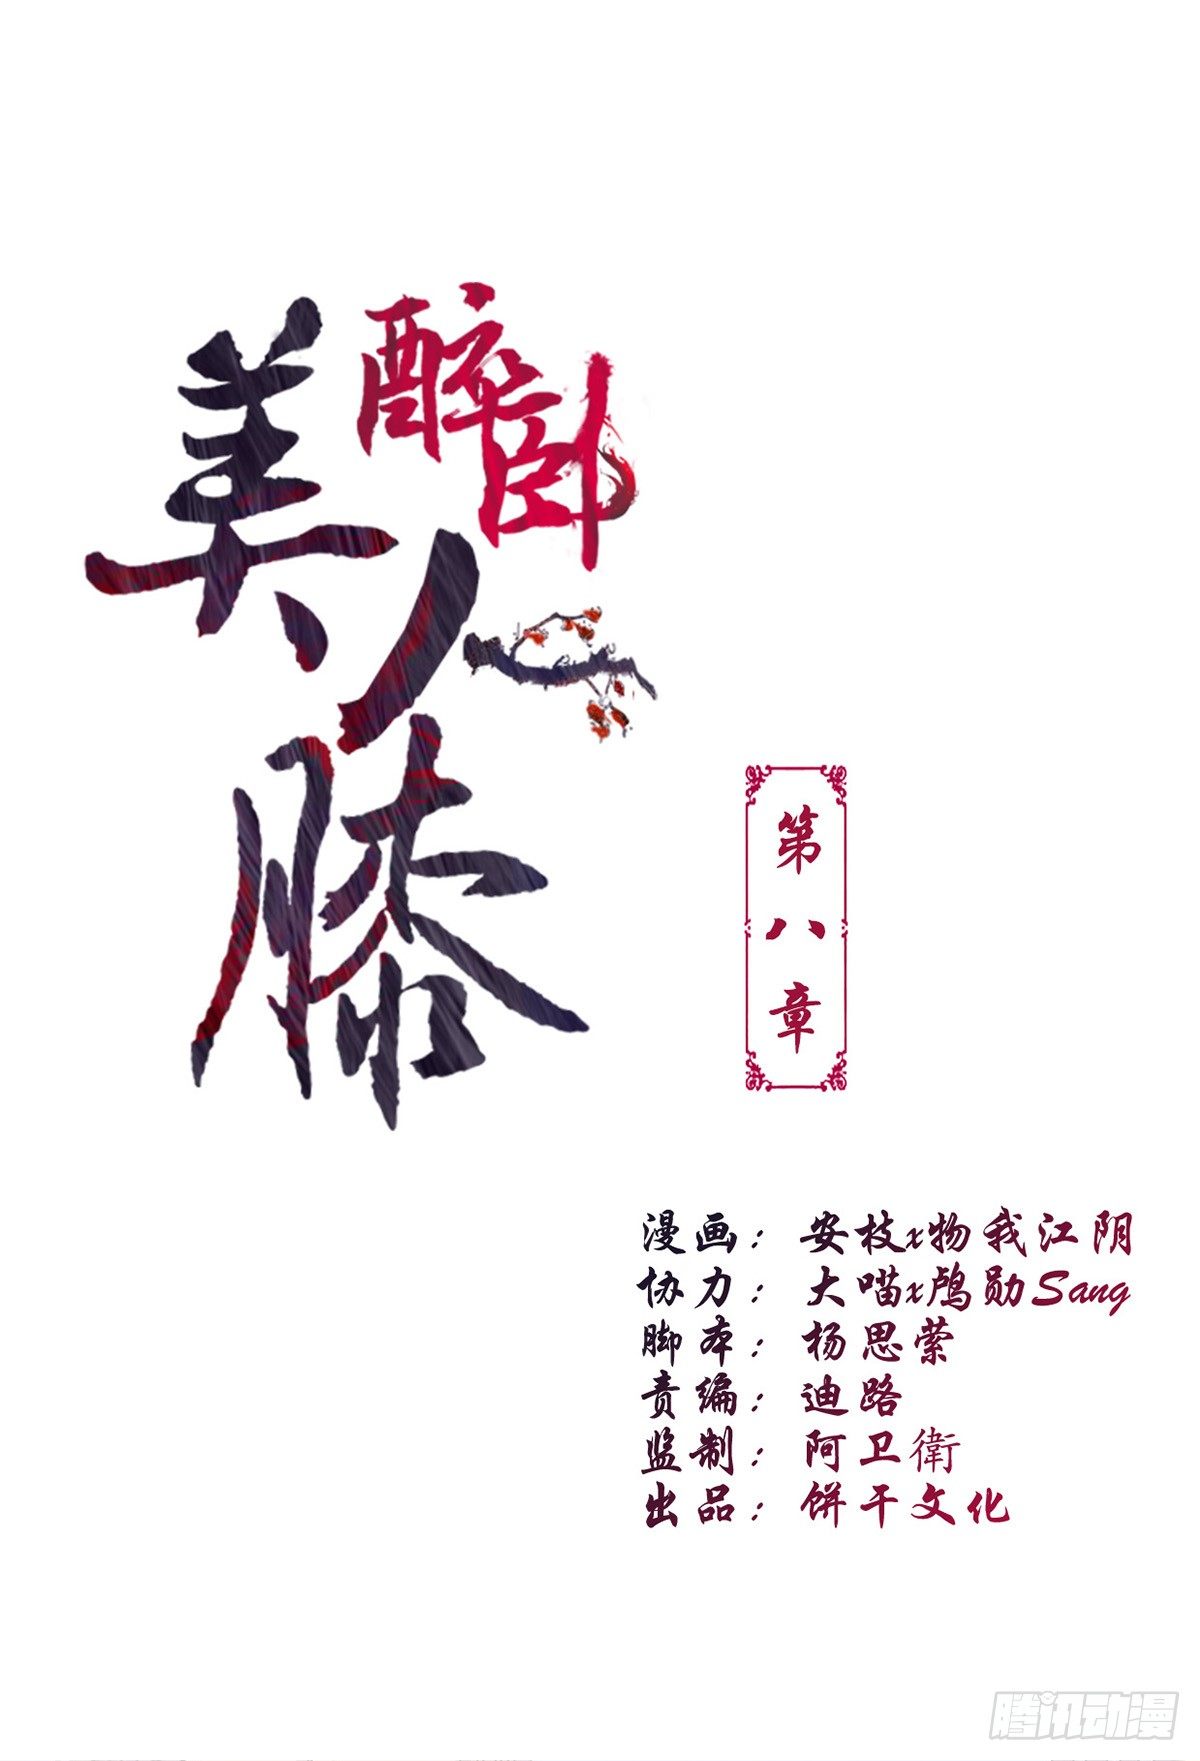 醉卧
美人膝
第八章
漫画：安枝x物我江阴
协力：大喵x鸬勋Sang
脚本：杨思萦
责编：迪路
监制：阿卫衛
出品：饼干文化
腾讯动漫